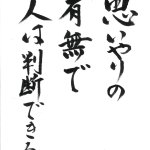 思いやりの
有無で
人は判断できる